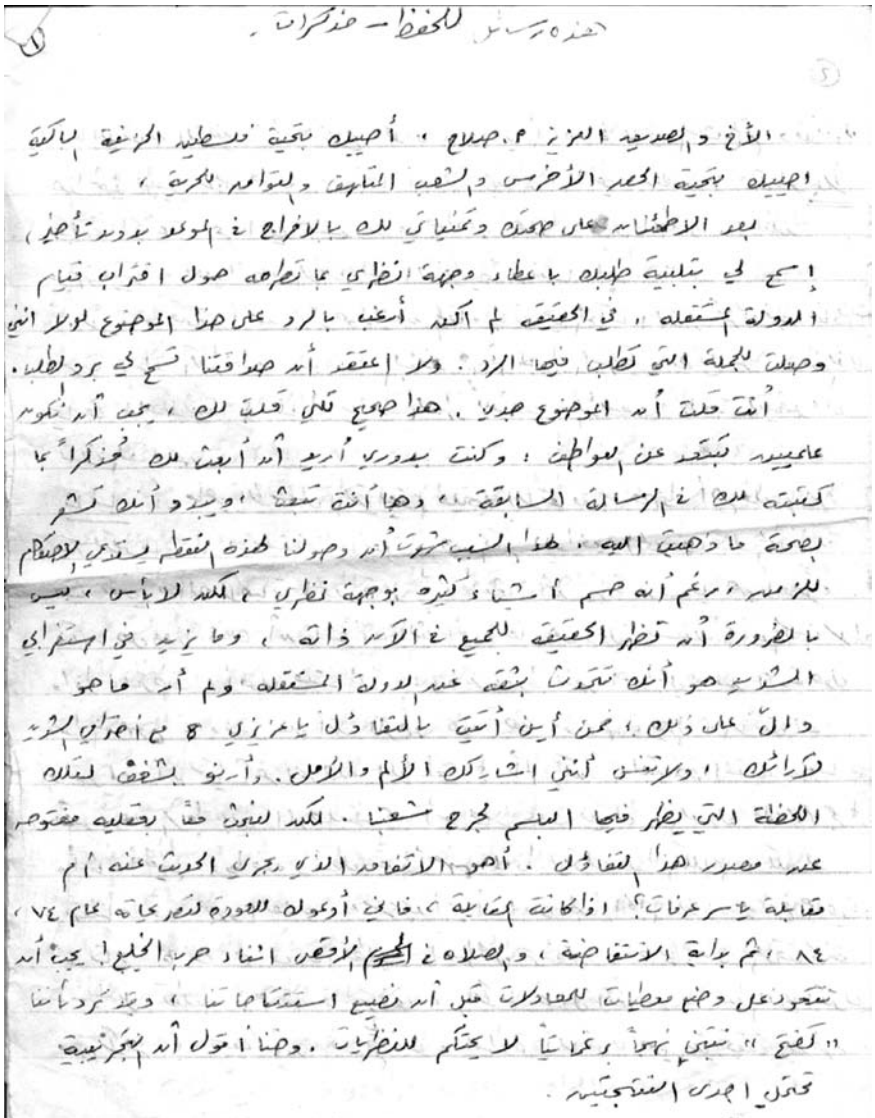 هذه رسائل للحفظ - مذكرات.
١
٢
الأخ والصديق العزيز م. صلاح ، أحييك بتحية فلسطين الحزينة الباكية
احييك بتحية الأخرس والشعب المتلهف والتواق للحرية ،
بعد الاطمئنان على صحتك وتمنياتي لك بالافراج في الموعد بدون تأخير ،
إسمح لي بتلبية طلبك باعطاء وجهة نظري بما تطرحه حول اقتراب قيام
الدولة المستقلة ، في الحقيقة لم اكن أرغب بالرد على هذا الموضوع لولا انني
وصلت للجملة التي تطلب فيها الرد . ولا اعتقد أن صداقتنا تسمح لي برد الطلب .
أنت قلت أن الموضوع جدي . هذا صحيح لكني قلت لك ، يجب أن نكون
علميين نبتعد عن العواطف ، وكنت بدوري أريد أن أبعث لك مُذكراً بما
كتبته لك في الرسالة السابقة ، وها أنت تبعث ، ويبدو أنك تشعر
بصحة ما ذهبت اليه . لهذا السبب أن وصولنا لهذه النقطة يستدعي الاحتكام
للزمن ، رغم أنه حسم أشياء كثيرة بوجهة نظري ، لكن لا بأس ، ليس
بالضرورة أن تظهر الحقيقة للجميع في الآن ذاته ، وما يزيد في استغرابي
الشديد هو أنك تتحدث بثقة عن الدولة المستقلة ولم أر ما هو
دالّ على ذلك ، فمن أين أتيت بالتفاؤل يا عزيزي ؟ مع احترامي الشديد
لآرائك ، ولا تنس أنني اشاركك الألم والأمل . وأرنو بشغف لتلك
اللحظة التي يظهر فيها البلسم لجرح شعبنا . لكن لنبحث معاً بعقلية مفتوحة
عن مصدر هذا التفاؤل . أهو الاتفاق الذي يجري الحديث عنه أم
مقابلة ياسر عرفات ؟ اذا كانت المقابلة ، فاني أدعوك للعودة لتصريحاته عام ٧٤ ،
٨٤ ، ثم بداية الانتفاضة ، والصلاه في الأقصى اثناء حرب الخليج ! يجب أن
نتعود على وضع معطيات للمعادلات قبل أن نضع استنتاجاتنا ، وقد أننا
" كفتح " نتبنى نهجاً برغماتياً لا يحتكم للنظريات . وهنا اقول أن التجريبية
تحتمل احدى النتيجتين .